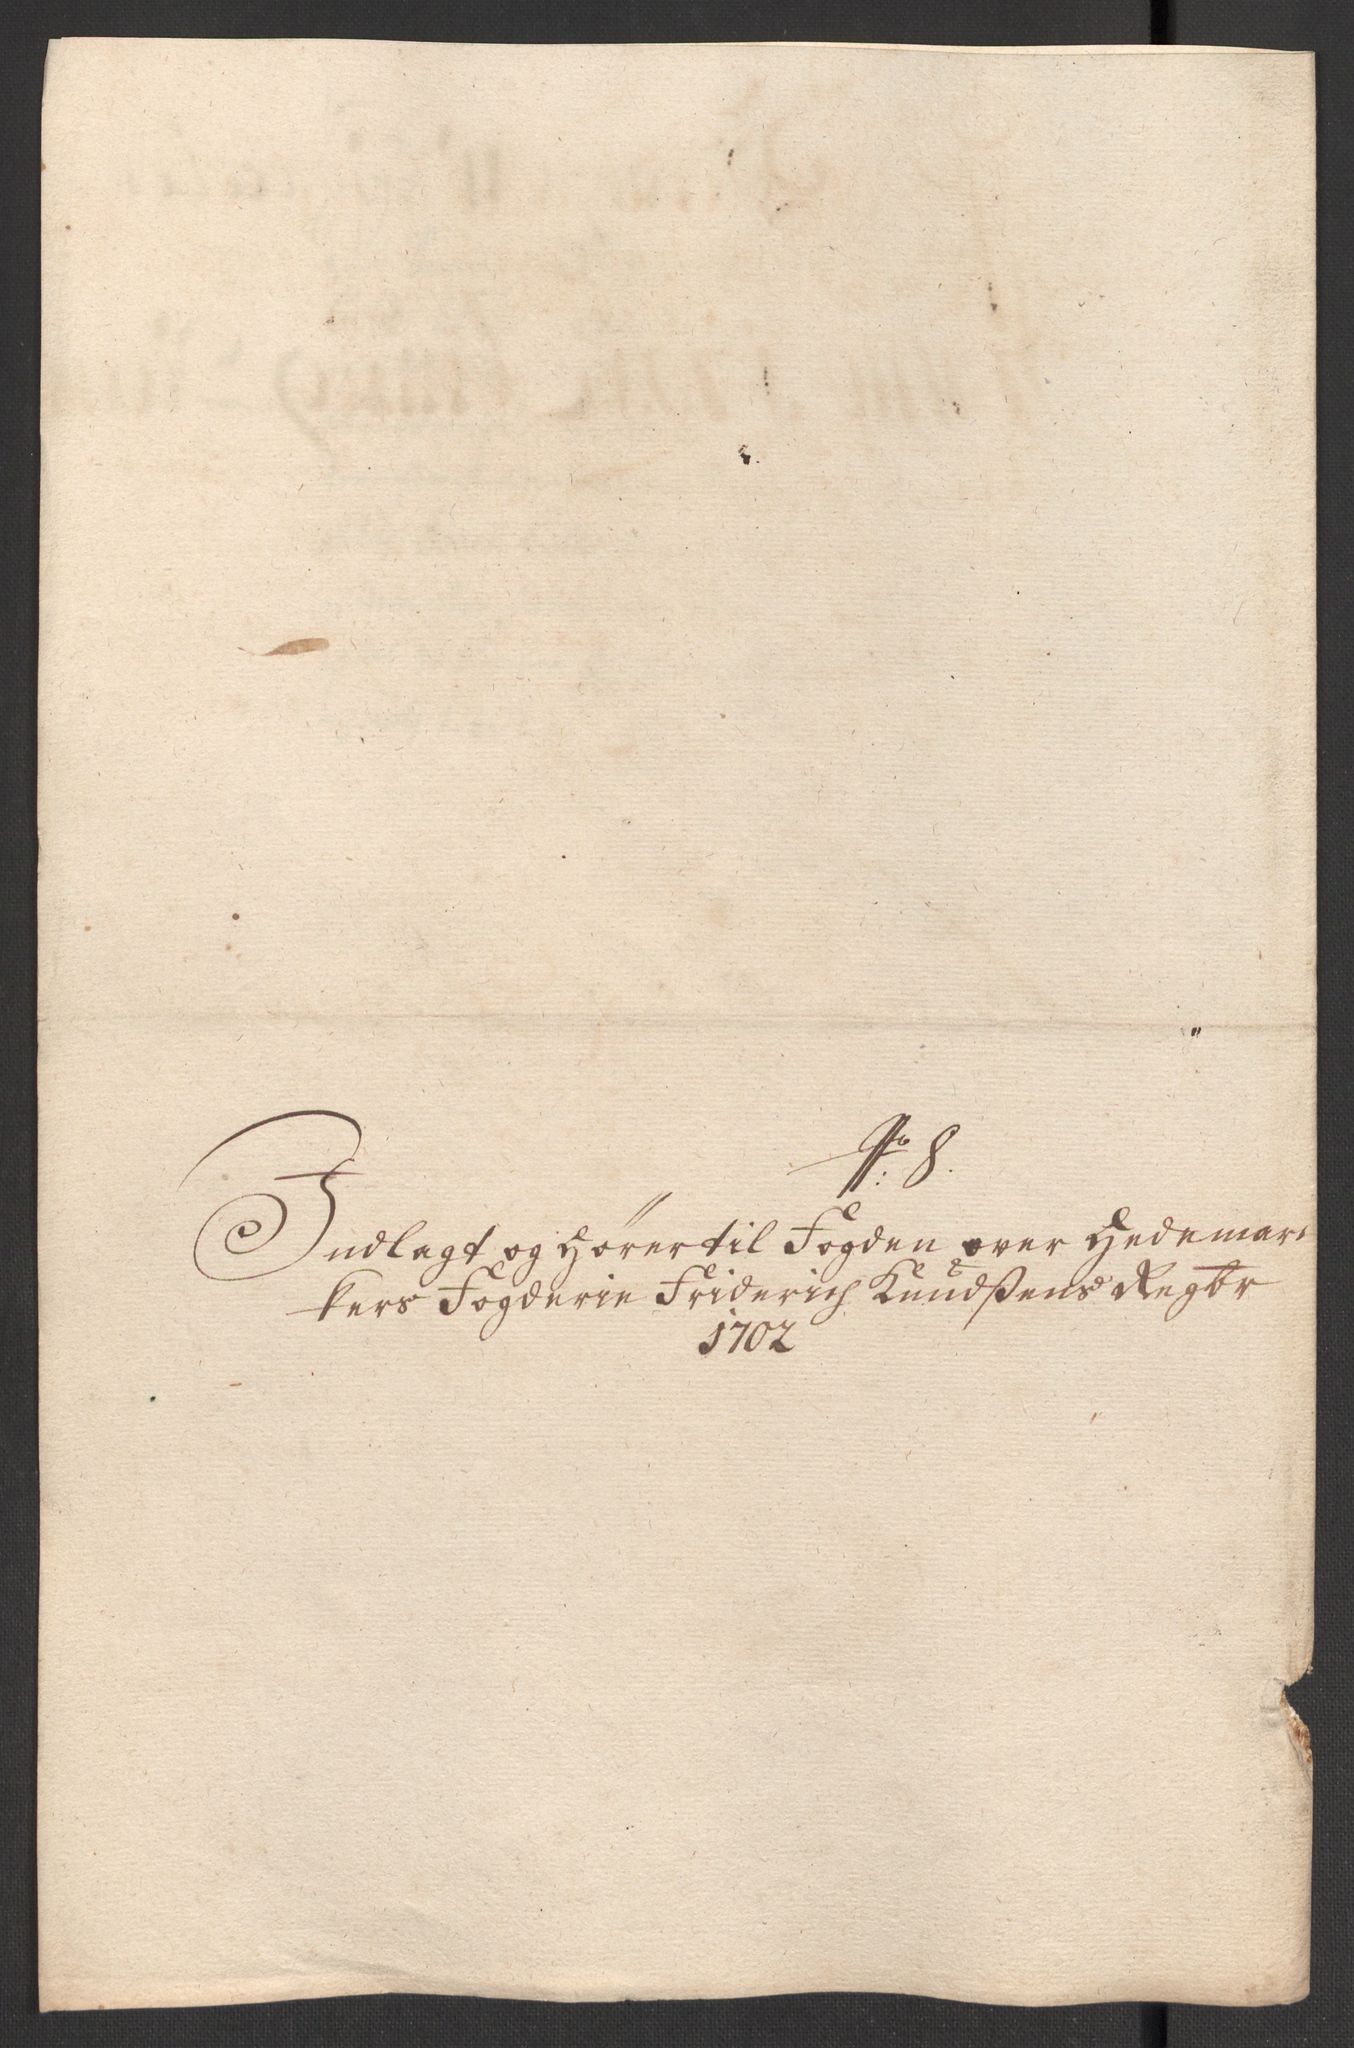 No. 8.
Indlagt og Hörer til Fogden over Hedemar-
kers Fogderie Friderich Knudßens Regbr
1702